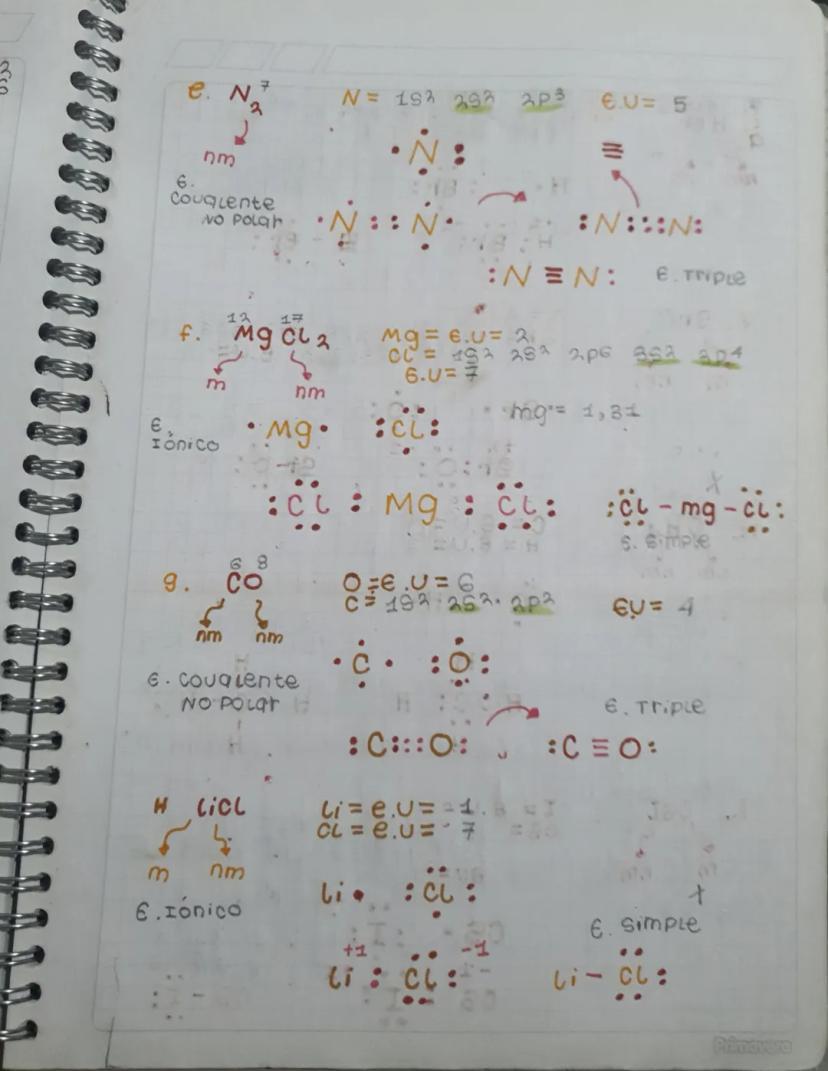 e. N₂⁷ N = 1s² 2s² 2p³ e.v = 5
• N : ≡
nm
e. covalente
NO Polar
• N : : N • :N:::N:
:N ≡ N: e. Triple
f. ¹²Mg ¹⁷Cl₂ Mg = e.v = 2
Cl = 1s² 2s² 2p6 3s² 3p4
e.v = 7
m nm
mg = 1,31
e. Iónico • Mg • :Cl:
:Cl : Mg : Cl: :Cl - mg - Cl:
s. simple
g. ⁶C⁸O O = e.v = 6
C = 1s² 2s² 2p² ev = 4
nm nm
• C • :O:
e. covalente
NO Polar
e. Triple
:C:::O: :C ≡ O:
H LiCl Li = e.v = 1
Cl = e.v = 7
m nm
Li • :Cl:
e. Iónico
e. simple
+1 -1
Li : Cl: Li - Cl:
Primavera